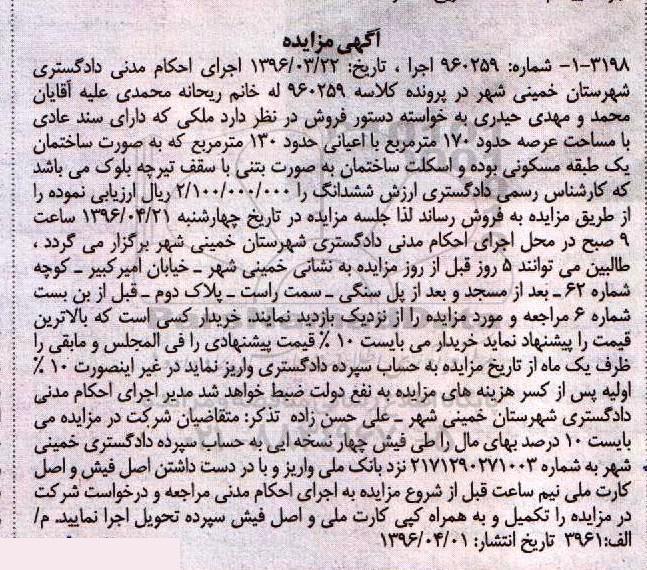 آگهی مزایده
۳۱۹۸-۱- شماره: ۹۶۰۲۵۹ اجرا ، تاریخ: ۱۳۹۶/۰۳/۲۲ اجرای احکام مدنی دادگستری
شهرستان خمینی شهر در پرونده کلاسه ۹۶۰۲۵۹ له خانم ریحانه محمدی علیه آقایان
محمد و مهدی حیدری به خواسته دستور فروش در نظر دارد ملکی که دارای سند عادی
با مساحت عرصه حدود ۱۷۰ مترمربع با اعیانی حدود ۱۳۰ مترمربع که به صورت ساختمان
یک طبقه مسکونی بوده و اسکلت ساختمان به صورت بتنی با سقف تیرچه بلوک می باشد
که کارشناس رسمی دادگستری ارزش ششدانگ را ۲/۱۰۰/۰۰۰/۰۰۰ ریال ارزیابی نموده را
از طریق مزایده به فروش رساند لذا جلسه مزایده در تاریخ چهارشنبه ۱۳۹۶/۰۴/۲۱ ساعت
۹ صبح در محل اجرای احکام مدنی دادگستری شهرستان خمینی شهر برگزار می گردد ،
طالبین می توانند ۵ روز قبل از روز مزایده به نشانی خمینی شهر ـ خیابان امیرکبیر ـ کوچه
شماره ۶۲ ـ بعد از مسجد و بعد از پل سنگی ـ سمت راست ـ پلاک دوم ـ قبل از بن بست
شماره ۶ مراجعه و مورد مزایده را از نزدیک بازدید نمایند. خریدار کسی است که بالاترین
قیمت را پیشنهاد نماید خریدار می بایست ۱۰ ٪ قیمت پیشنهادی را فی المجلس و مابقی را
ظرف یک ماه از تاریخ مزایده به حساب سپرده دادگستری واریز نماید در غیر اینصورت ۱۰ ٪
اولیه پس از کسر هزینه های مزایده به نفع دولت ضبط خواهد شد مدیر اجرای احکام مدنی
دادگستری شهرستان خمینی شهر ـ علی حسن زاده تذکر: متقاضیان شرکت در مزایده می
بایست ۱۰ درصد بهای مال را طی فیش چهار نسخه ایی به حساب سپرده دادگستری خمینی
شهر به شماره ۲۱۷۱۲۹۰۲۷۱۰۰۳ نزد بانک ملی واریز و با در دست داشتن اصل فیش و اصل
کارت ملی نیم ساعت قبل از شروع مزایده به اجرای احکام مدنی مراجعه و درخواست شرکت
در مزایده را تکمیل و به همراه کپی کارت ملی و اصل فیش سپرده تحویل اجرا نمایید. م/
الف:۳۹۶۱ تاریخ انتشار: ۱۳۹۶/۰۴/۰۱